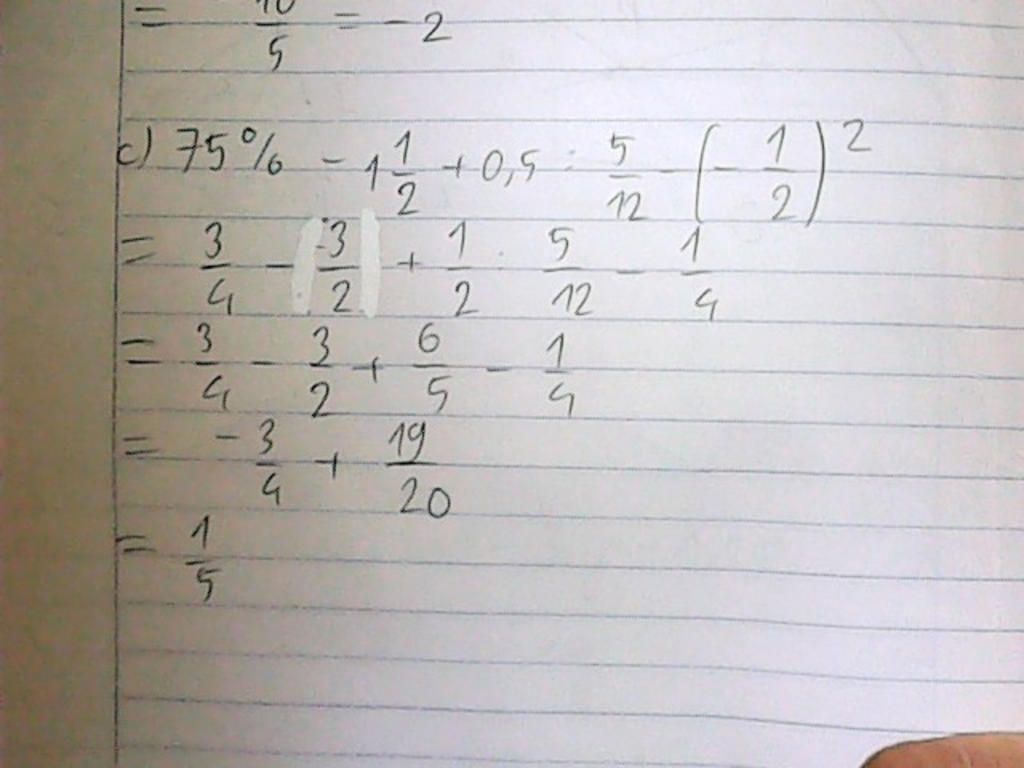 = 10/5 = -2
c) 75% - 1 1/2 + 0,5 : 5/12 - (- 1/2)^2
= 3/4 - 3/2 + 1/2 : 5/12 - 1/4
= 3/4 - 3/2 + 6/5 - 1/4
= -3/4 + 19/20
= 1/5